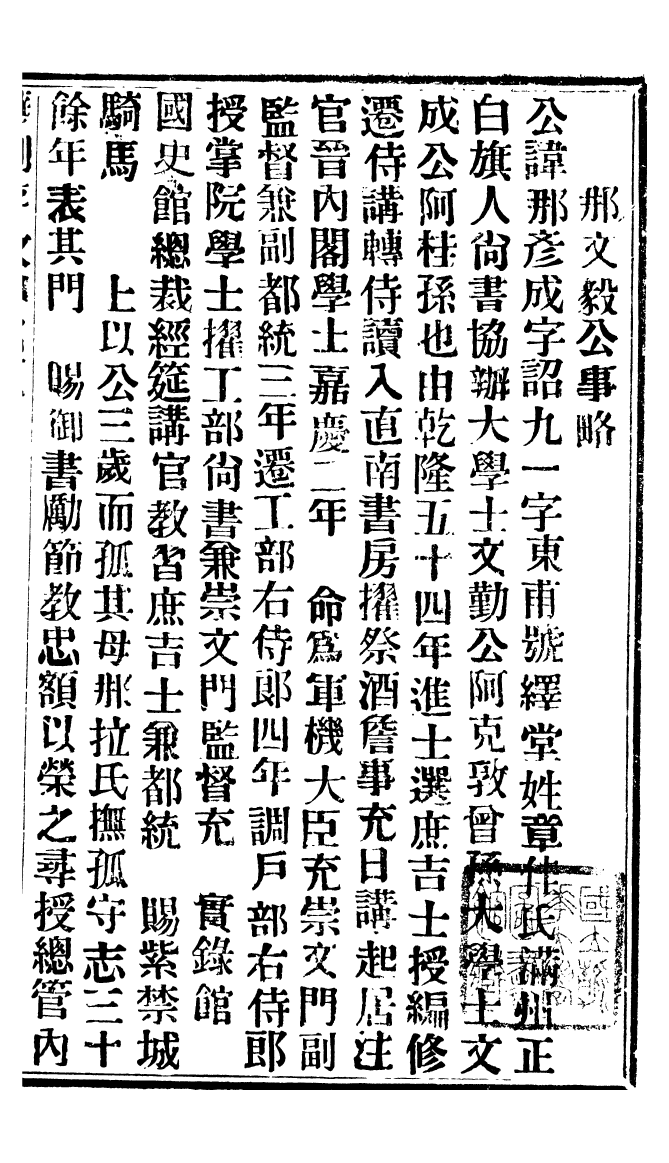 那文毅公事略
公諱那彥成字韶九一字東甫號繹堂姓章佳氏滿州正
白旗人尙書協辦大學士文勤公阿克敦曾孫大學士文
成公阿桂孫也由乾隆五十四年進士選庶吉士授編修
遷侍講轉侍讀入直南書房擢祭酒詹事充日講起居注
官晉內閣學士嘉慶二年　命爲軍機大臣充崇文門副
監督兼副都統三年遷工部右侍郞四年調戶部右侍郞
授掌院學士擢工部尙書兼崇文門監督充　實錄館
國史館總裁經筵講官教習庶吉士兼都統　賜紫禁城
騎馬　上以公三歲而孤其母那拉氏撫孤守志三十
餘年表其門　賜御書勵節教忠額以榮之尋授總管內